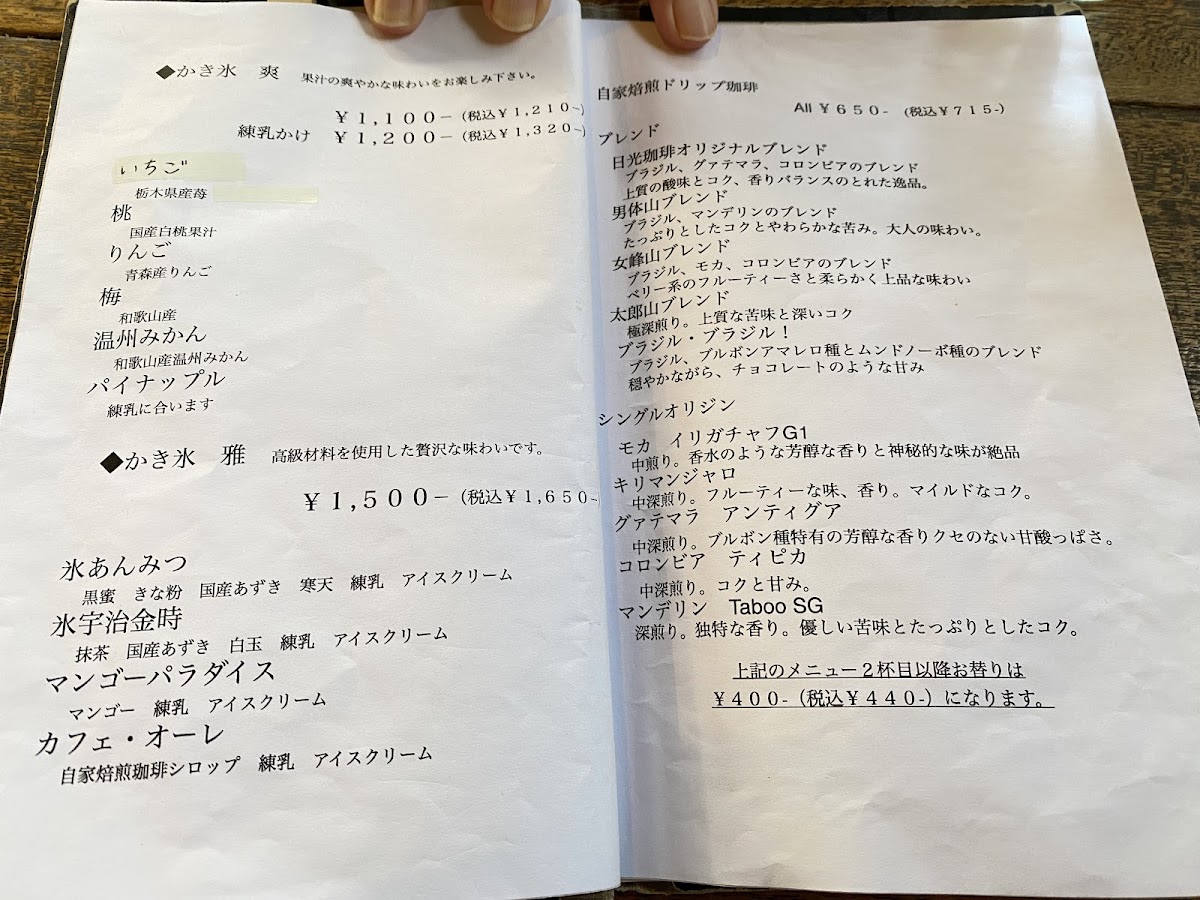 ◆かき氷 爽 果汁の爽やかな味わいをお楽しみ下さい。
¥1,100-(税込¥1,210-)
練乳かけ ¥1,200-(税込¥1,320-)
いちご
栃木県産苺
桃
国産白桃果汁
りんご
青森産りんご
梅
和歌山産
温州みかん
和歌山産温州みかん
パイナップル
練乳に合います
◆かき氷 雅 高級材料を使用した贅沢な味わいです。
¥1,500-(税込¥1,650-
氷あんみつ
黒蜜 きな粉 国産あずき 寒天 練乳 アイスクリーム
氷宇治金時
抹茶 国産あずき 白玉 練乳 アイスクリーム
マンゴーパラダイス
マンゴー 練乳 アイスクリーム
カフェ・オーレ
自家焙煎珈琲シロップ 練乳 アイスクリーム
自家焙煎ドリップ珈琲
All ¥650- (税込¥715-)
ブレンド
日光珈琲オリジナルブレンド
ブラジル、グァテマラ、コロンビアのブレンド
上質の酸味とコク、香りバランスのとれた逸品。
男体山ブレンド
ブラジル、マンデリンのブレンド
たっぷりとしたコクとやわらかな苦み。大人の味わい。
女峰山ブレンド
ブラジル、モカ、コロンビアのブレンド
ベリー系のフルーティーさと柔らかく上品な味わい
太郎山ブレンド
極深煎り。上質な苦味と深いコク
ブラジル・ブラジル!
ブラジル、ブルボンアマレロ種とムンドノーボ種のブレンド
穏やかながら、チョコレートのような甘み
シングルオリジン
モカ イリガチャフG1
中煎り。香水のような芳醇な香りと神秘的な味が絶品
キリマンジャロ
中深煎り。フルーティーな味、香り。マイルドなコク。
グァテマラ アンティグア
中深煎り。ブルボン種特有の芳醇な香りクセのない甘酸っぱさ。
コロンビア ティピカ
中深煎り。コクと甘み。
マンデリン Taboo SG
深煎り。独特な香り。優しい苦味とたっぷりとしたコク。
上記のメニュー2杯目以降お替りは
¥400-(税込¥440-)になります。